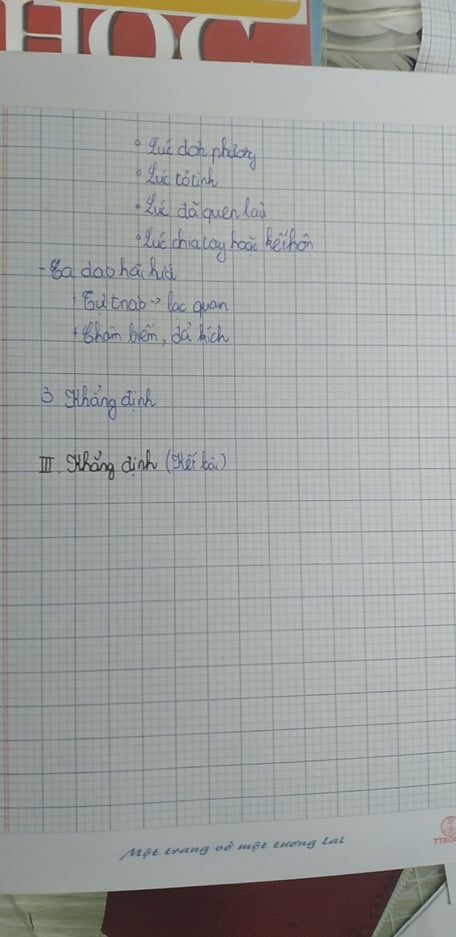 HỌC
◦ Lúc đơn phương
◦ Lúc tỏ tình
• Lúc đã quen lâu
• Lúc chia tay hoặc kết hôn
- Ca dao hài hước
+ Tự trào → lạc quan
+ Châm biếm, đả kích
3. Khẳng định
III. Khẳng định (Kết bài)
Một trang vở một tương lai